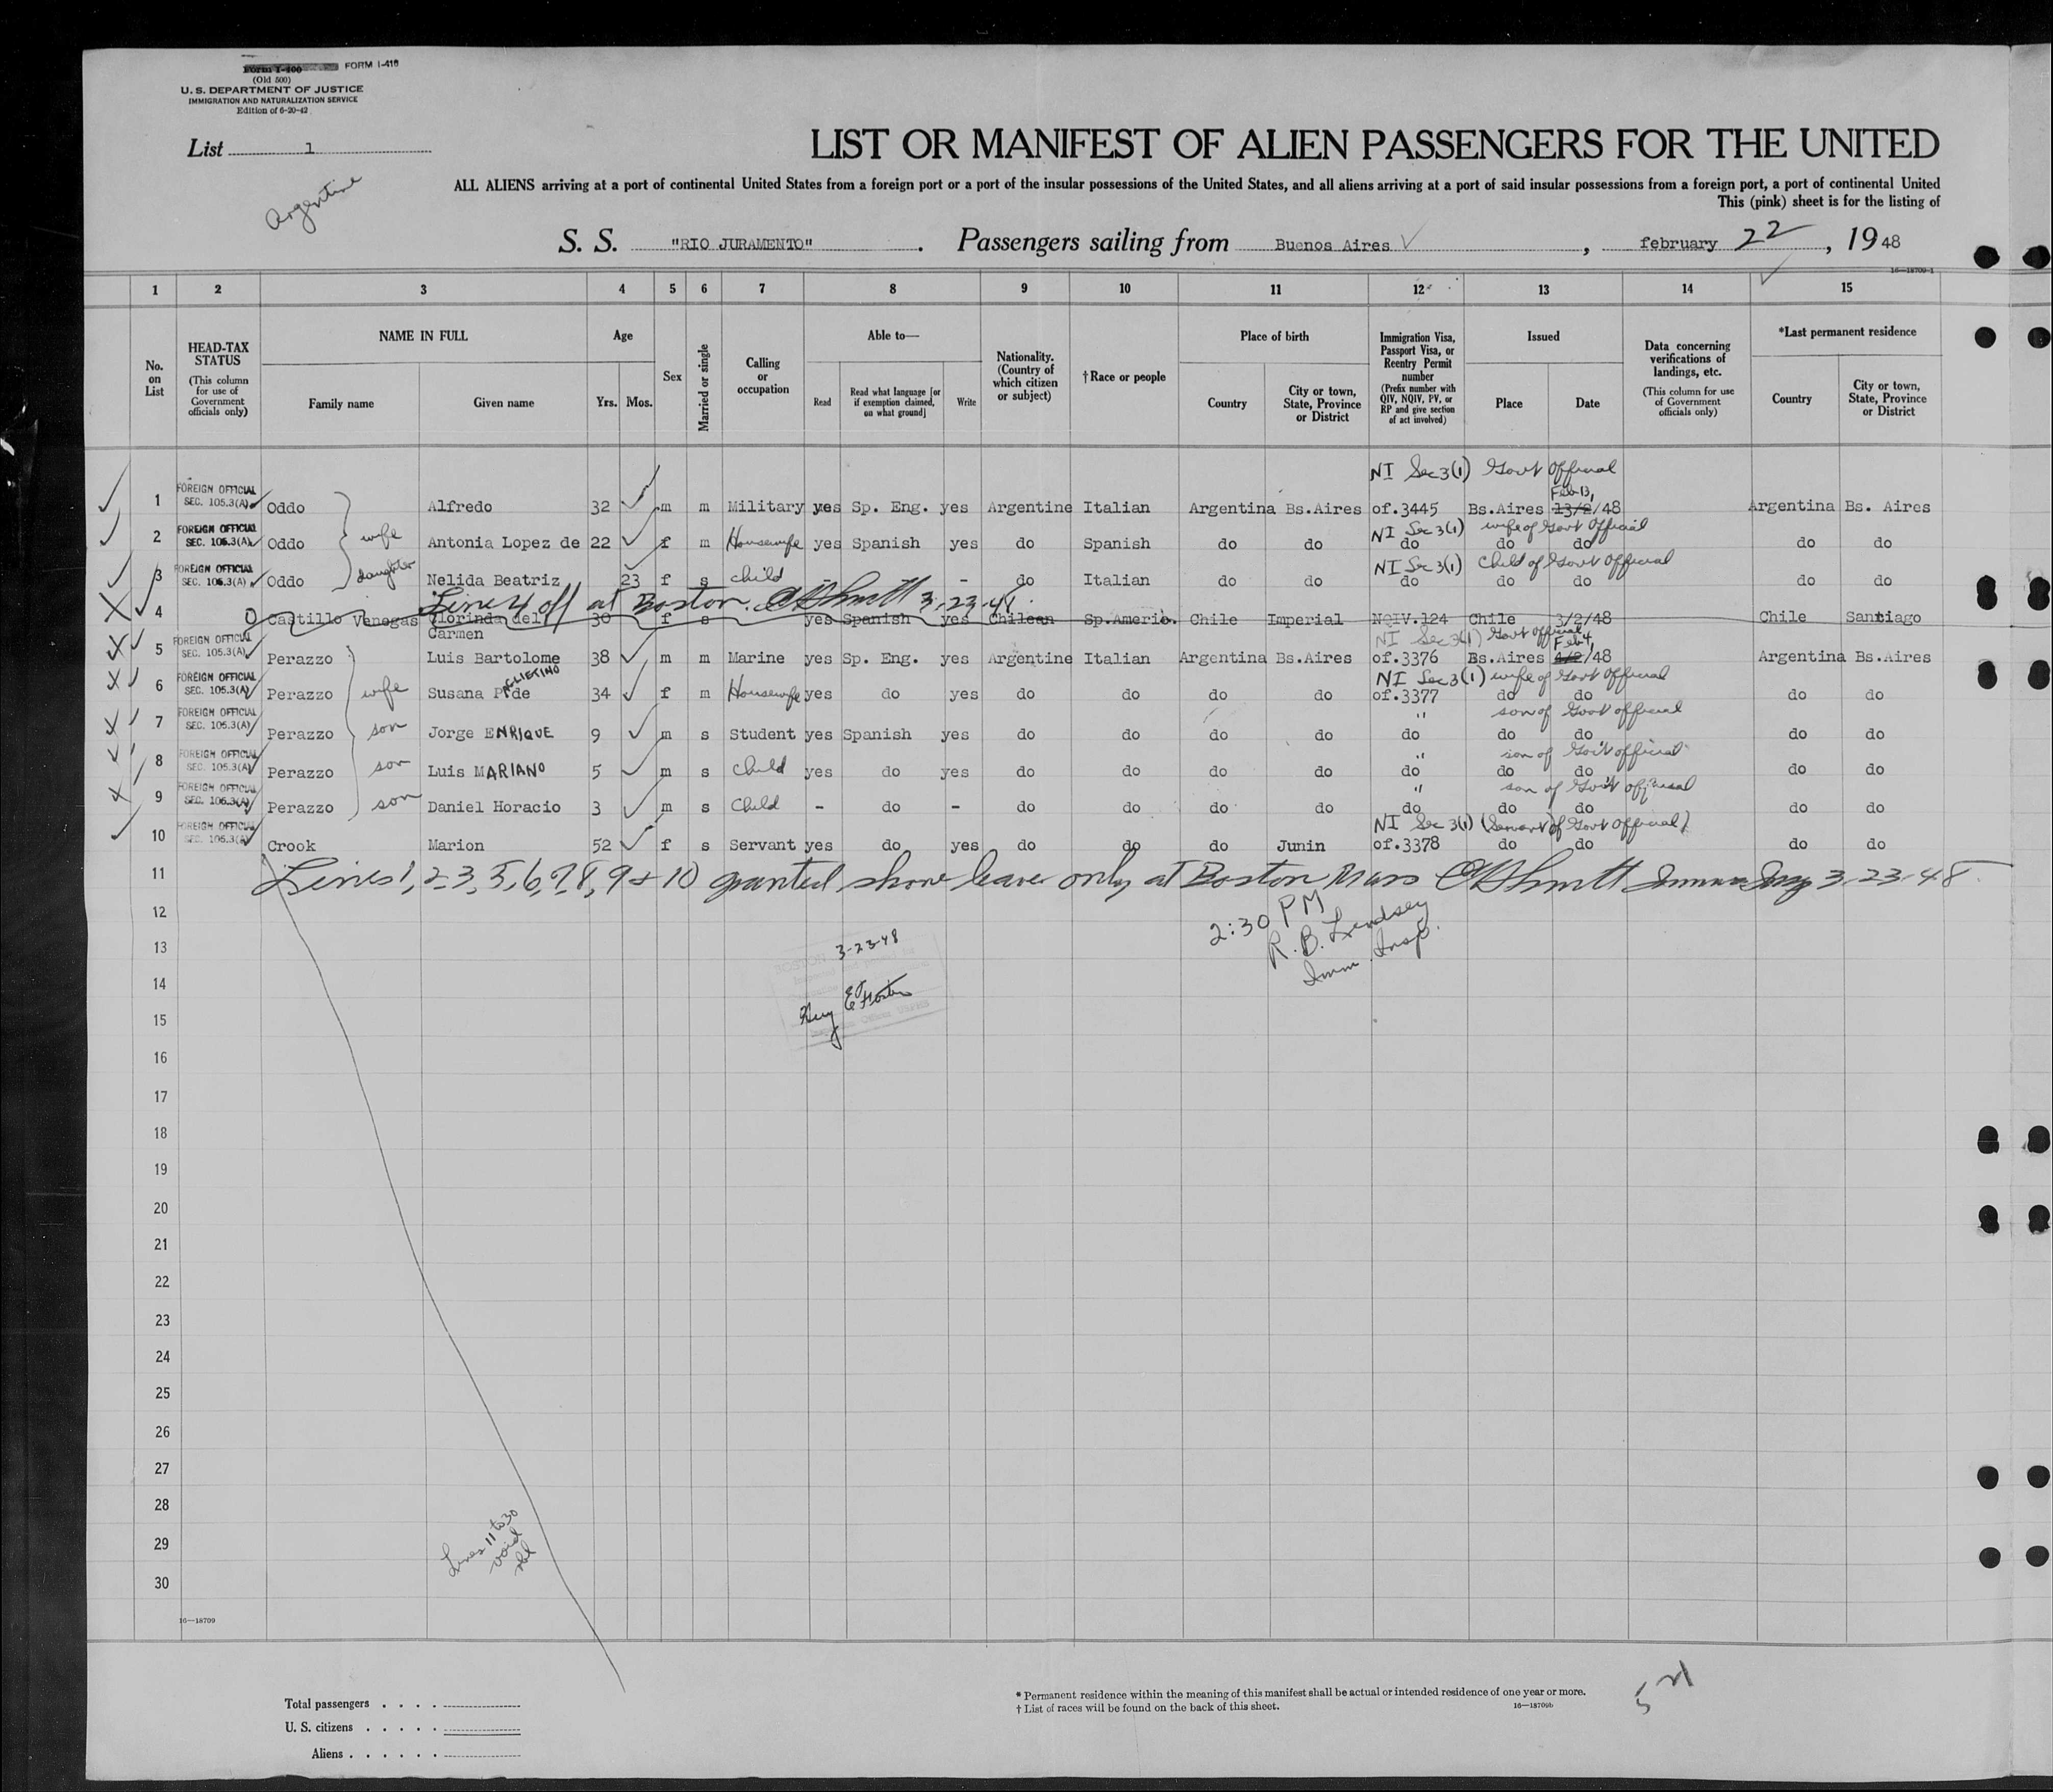 Form I-400 FORM I-418
(Old 500)
U. S. DEPARTMENT OF JUSTICE
IMMIGRATION AND NATURALIZATION SERVICE
Edition of 6-20-42
List 1
Argentine
LIST OR MANIFEST OF ALIEN PASSENGERS FOR THE UNITED
ALL ALIENS arriving at a port of continental United States from a foreign port or a port of the insular possessions of the United States, and all aliens arriving at a port of said insular possessions from a foreign port, a port of continental United
This (pink) sheet is for the listing of
S. S. "RIO JURAMENTO" . Passengers sailing from Buenos Aires , february 22 , 19 48
16—18709-1
1 2 3 4 5 6 7 8 9 10 11 12 13 14 15
No. on List
HEAD-TAX STATUS (This column for use of Government officials only)
NAME IN FULL
Family name Given name
Age
Yrs. Mos.
Sex
Married or single
Calling or occupation
Able to—
Read
Read what language [or if exemption claimed, on what ground]
Write
Nationality. (Country of which citizen or subject)
†Race or people
Place of birth
Country
City or town, State, Province or District
Immigration Visa, Passport Visa, or Reentry Permit number (Prefix number with QIV, NQIV, PV, or RP and give section of act involved)
Issued
Place Date
Data concerning verifications of landings, etc. (This column for use of Government officials only)
*Last permanent residence
Country
City or town, State, Province or District
NI Sec 3(1) Govt Official
Feb 13,
1 FOREIGN OFFICIAL SEC. 105.3(A) Oddo Alfredo 32 m m Military yes Sp. Eng. yes Argentine Italian Argentina Bs.Aires of.3445 Bs.Aires 13/2/48 Argentina Bs. Aires
NI Sec 3(1) wife of Govt Official
2 FOREIGN OFFICIAL SEC. 105.3(A) Oddo wife Antonia Lopez de 22 f m Housewife yes Spanish yes do Spanish do do do do do do do
NI Sec 3(1) Child of Govt Official
3 FOREIGN OFFICIAL SEC. 105.3(A) Oddo daughter Nelida Beatriz 23 f s child - do Italian do do do do do do do
Line 4 off at Boston. 3-23-48
4 Castillo Venegas Clorinda del Carmen 30 f s yes Spanish yes Chilean Sp.Americ. Chile Imperial NQIV.124 Chile 3/2/48 Chile Santiago
NI Sec 3(1) Govt official
Feb 4,
5 FOREIGN OFFICIAL SEC. 105.3(A) Perazzo Luis Bartolome 38 m m Marine yes Sp. Eng. yes Argentine Italian Argentina Bs.Aires of.3376 Bs.Aires 4/2/48 Argentina Bs.Aires
NI Sec 3(1) wife of Govt Official
6 FOREIGN OFFICIAL SEC. 105.3(A) Perazzo wife Susana de 34 f m Housewife yes do yes do do do do of.3377 do do do do
" son of Govt official
7 FOREIGN OFFICIAL SEC. 105.3(A) Perazzo son Jorge ENRIQUE 9 m s Student yes Spanish yes do do do do do do do do do
" son of Gov't official
8 FOREIGN OFFICIAL SEC. 105.3(A) Perazzo son Luis MARIANO 5 m s child yes do yes do do do do do do do do do
" son of Gov't official
9 FOREIGN OFFICIAL SEC. 105.3(A) Perazzo son Daniel Horacio 3 m s child - do - do do do do do do do do do
NI Sec 3(1) (Servant of Govt Official)
10 FOREIGN OFFICIAL SEC. 105.3(A) Crook Marion 52 f s Servant yes do yes do do do Junin of.3378 do do do do
11 Lines 1, 2, 3, 5, 6, 7, 8, 9 & 10 granted shore leave only at Boston Mass 3-23-48
12
2:30 PM
R. B. Lindsey
Imm. Insp.
13
3-23-48
14
15
16
17
18
19
20
21
22
23
24
25
26
27
28
29
30
Lines 11 to 30
void
rbl
16—18709
Total passengers . . . .
U. S. citizens . . . . .
Aliens . . . . . .
* Permanent residence within the meaning of this manifest shall be actual or intended residence of one year or more.
† List of races will be found on the back of this sheet.
16—18709b